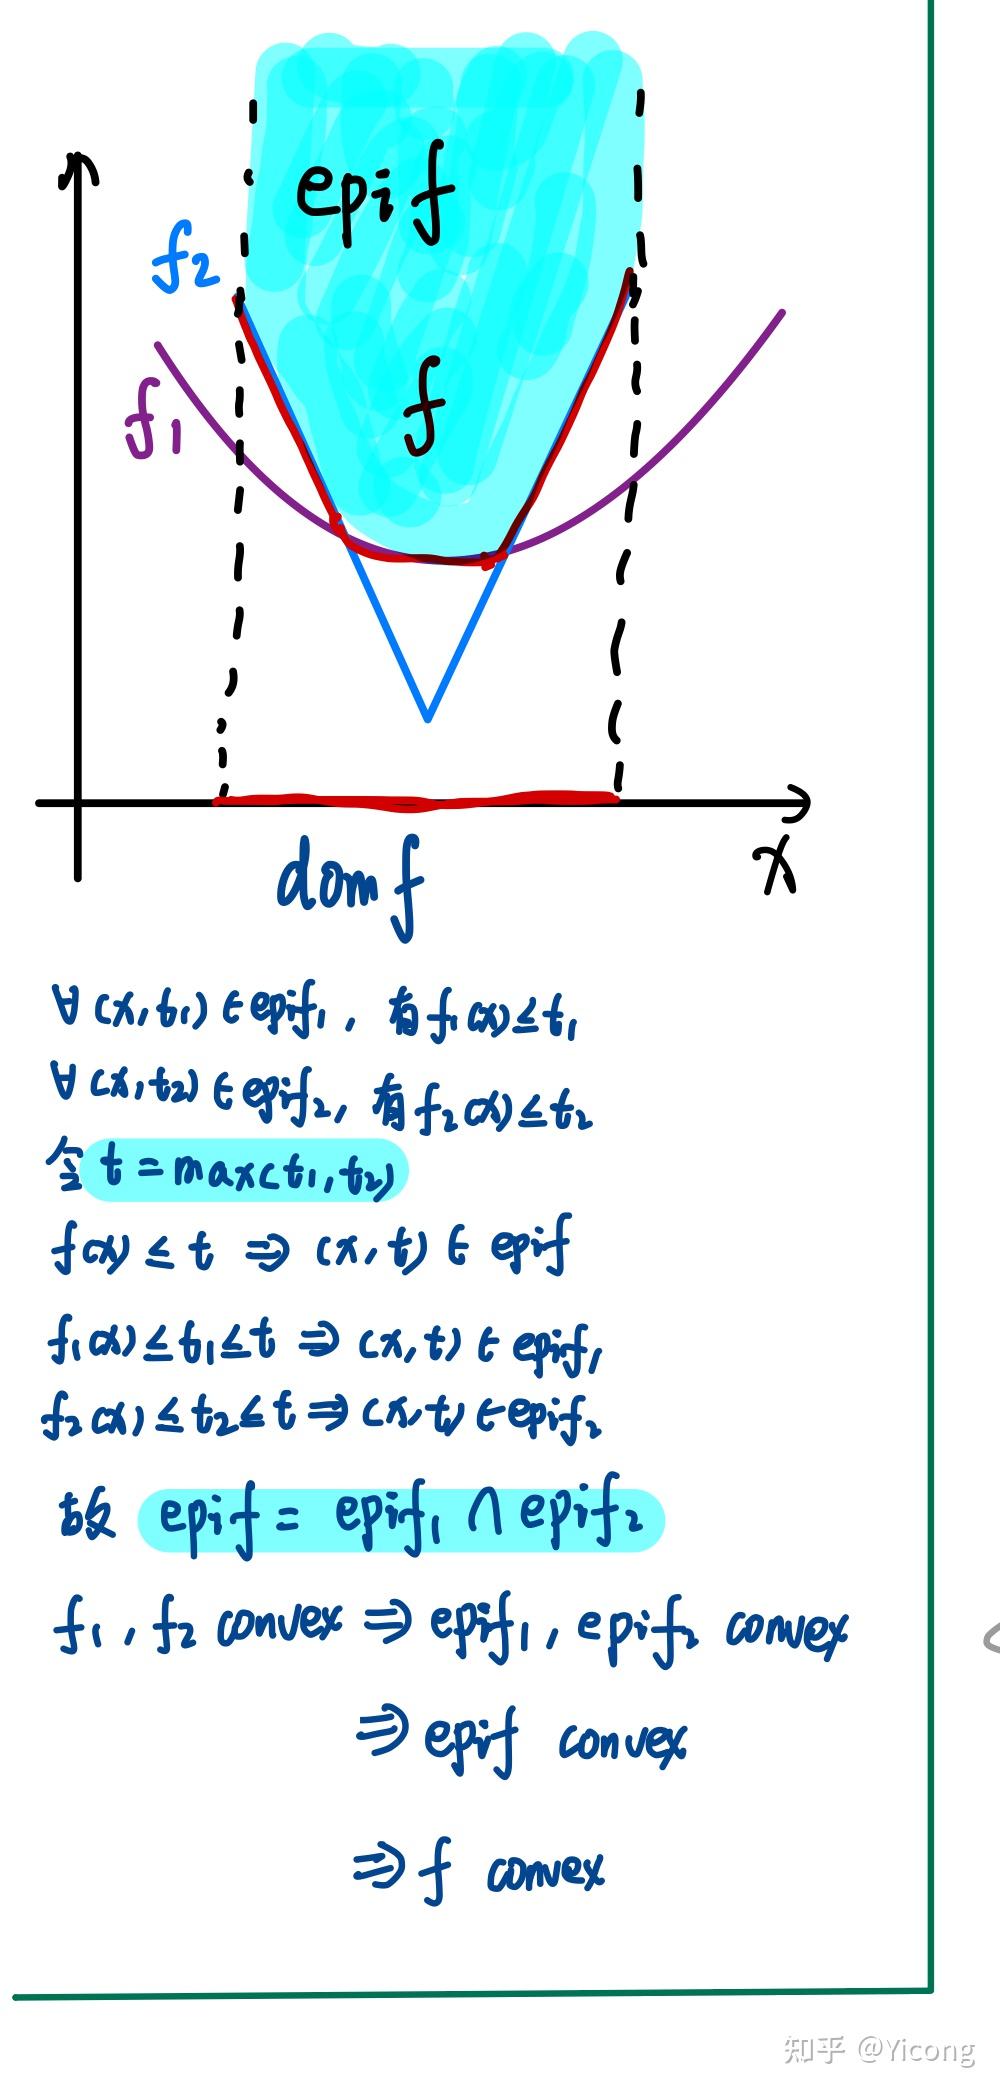 epi f
f2
f
f1
dom f
x
∀(x,t1)∈epif1, 有f1(x)≤t1
∀(x,t2)∈epif2, 有f2(x)≤t2
令t=max(t1,t2)
f(x)≤t ⇒ (x,t)∈epif
f1(x)≤t1≤t ⇒ (x,t)∈epif1
f2(x)≤t2≤t ⇒ (x,t)∈epif2
故 epif = epif1 ∩ epif2
f1, f2 convex ⇒ epif1, epif2 convex
⇒ epif convex
⇒ f convex
知乎 @Yicong